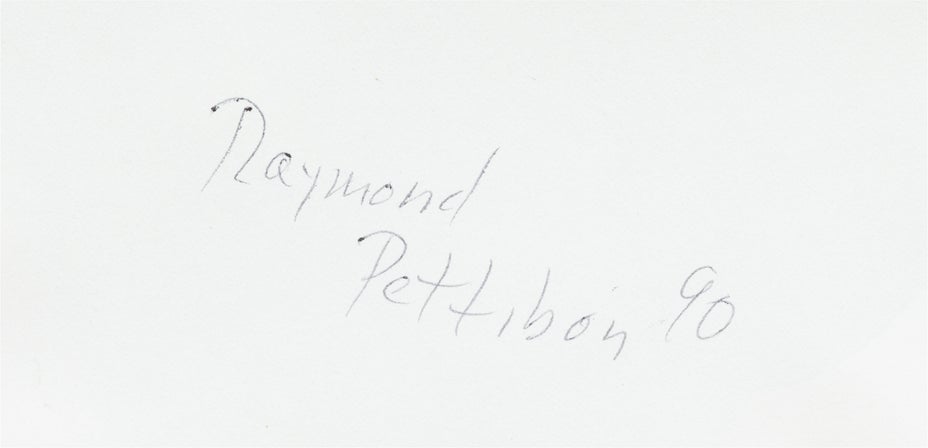 Raymond
Pettibon 90